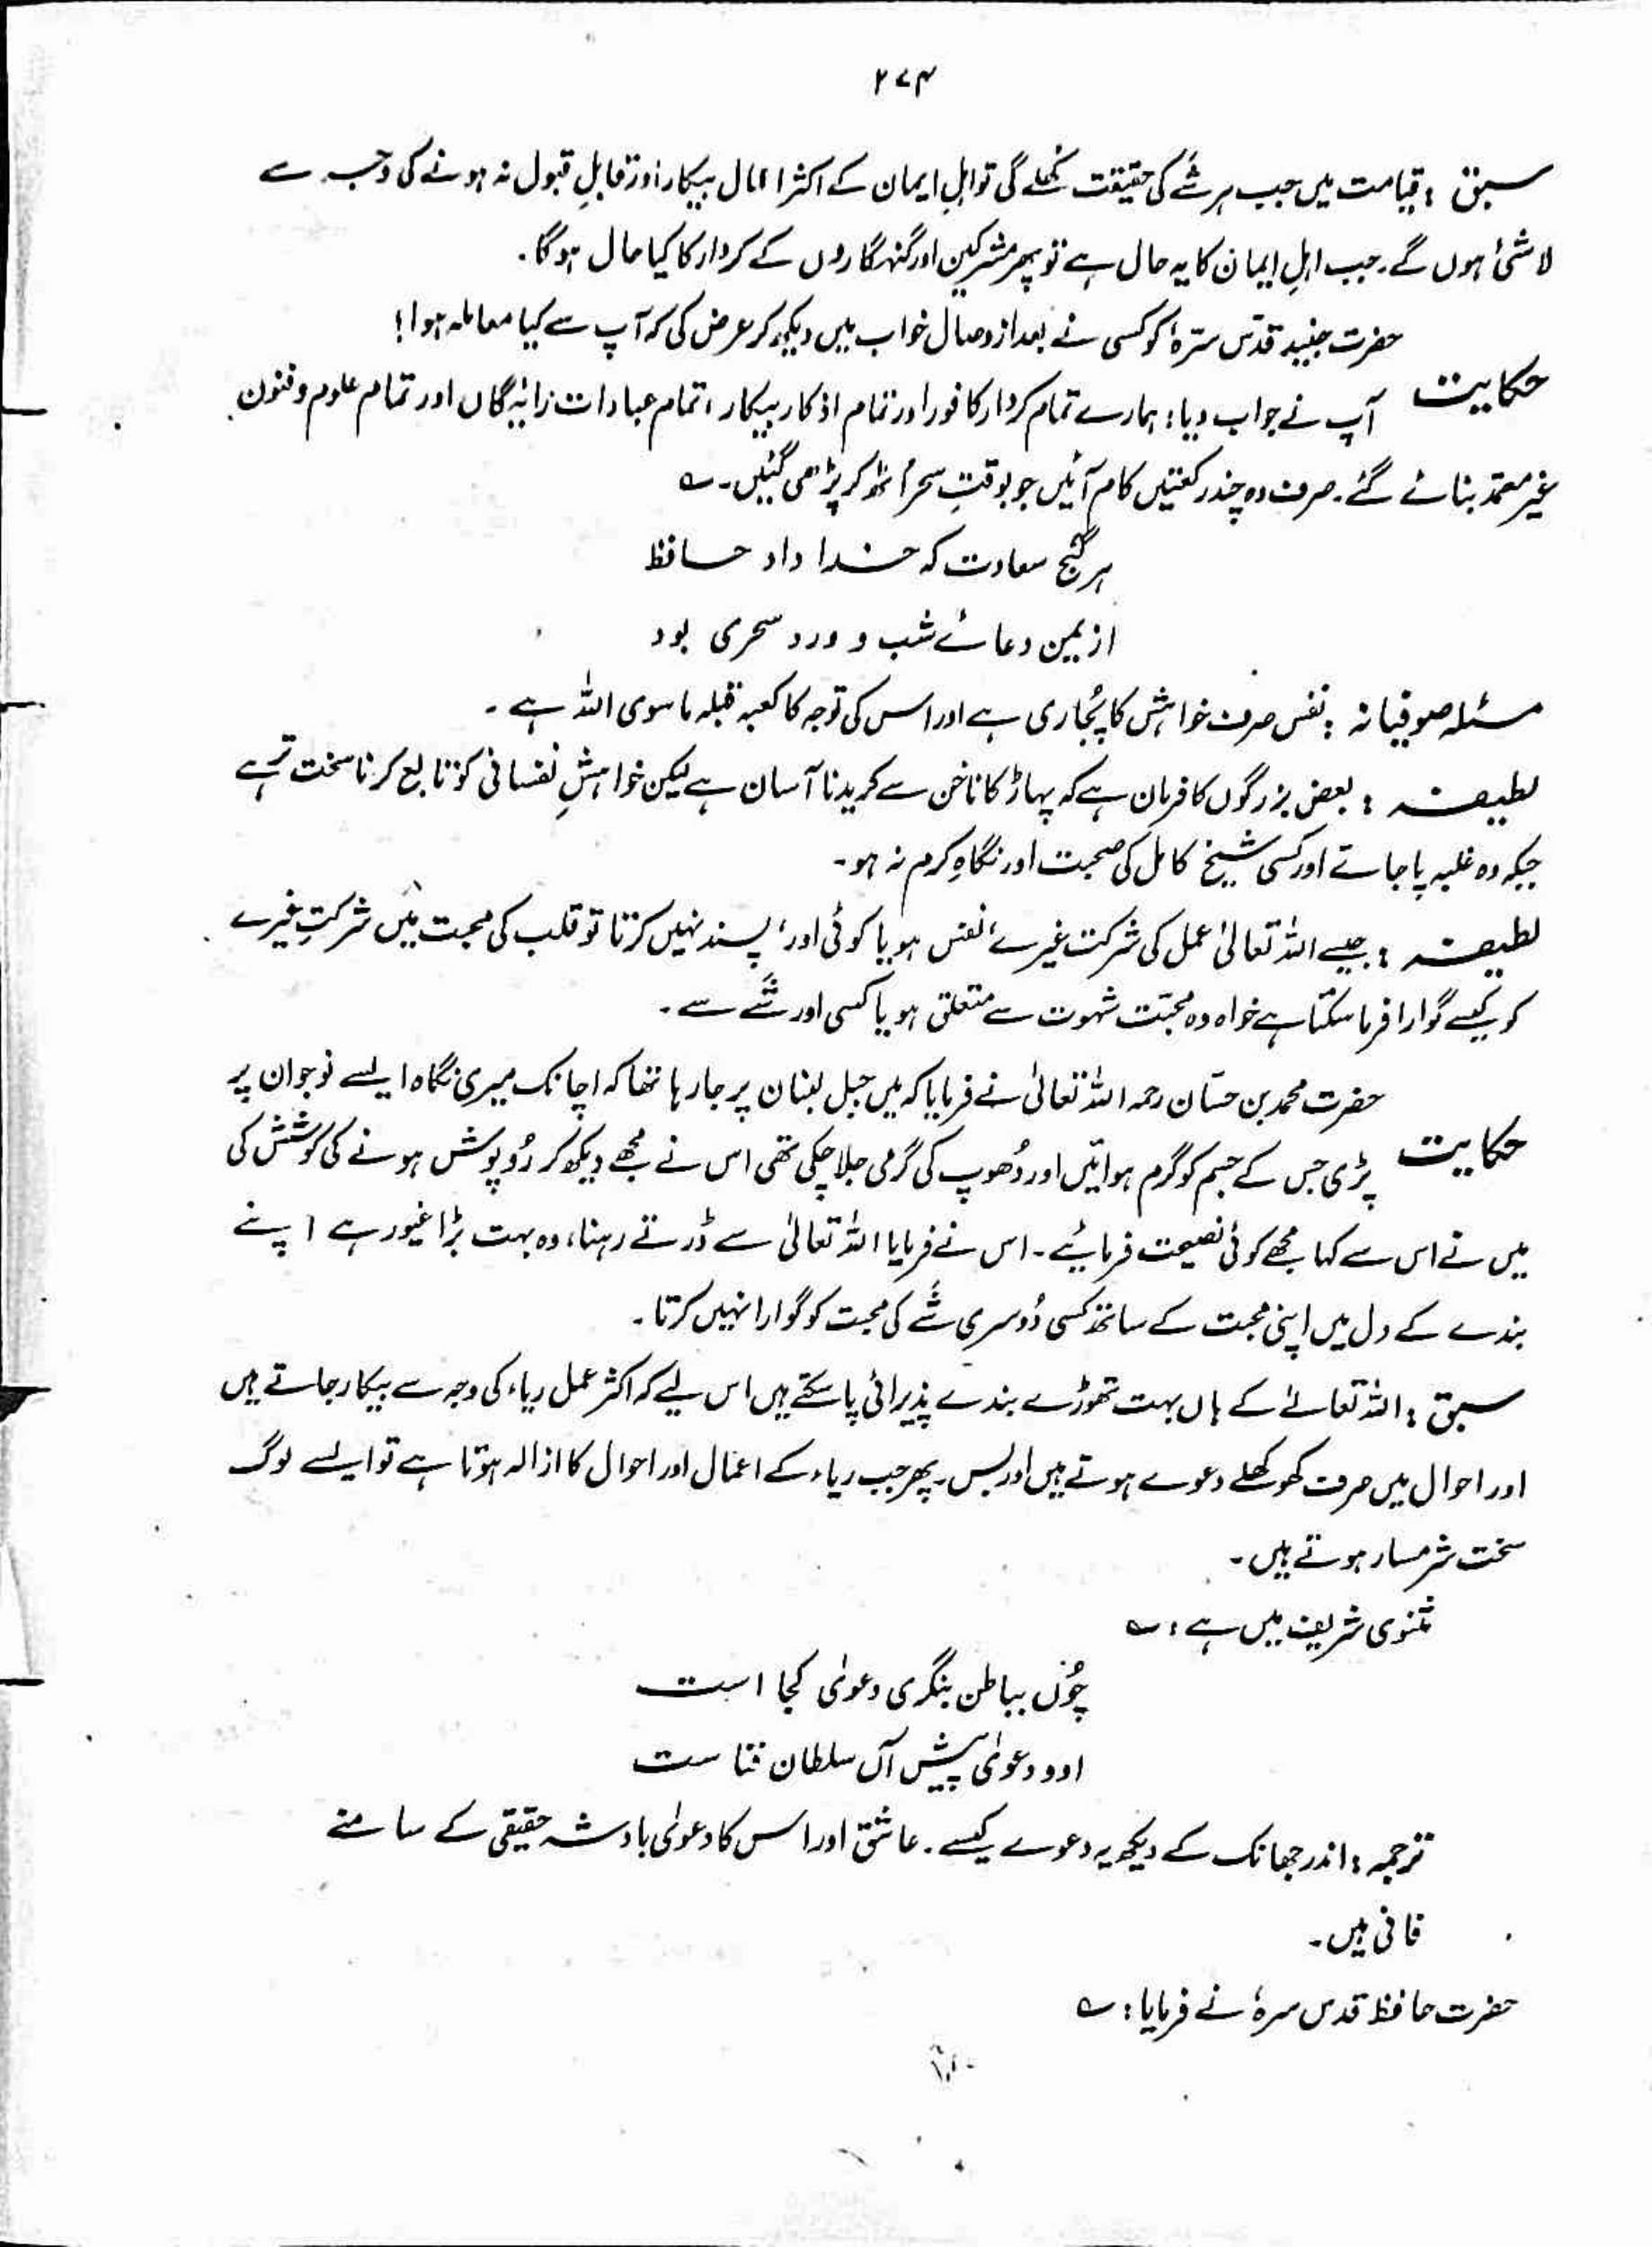 ۲۷۴
سبق : قیامت میں جب ہر شَے کی حقیقت کُھلے گی تو اہلِ ایمان کے اکثر اعمال بیکار اور قابلِ قبول نہ ہونے کی وجہ سے
لاشئ ہوں گے۔ جب اہلِ ایمان کا یہ حال ہے تو پھر مشرکین اور گنہگاروں کے کردار کا کیا حال ہوگا۔
حضرت جنید قدّس سترہٗ کو کسی نے بعد از وصال خواب میں دیکھ کر عرض کی کہ آپ سے کیا معاملہ ہوا؛
حکایت آپ نے جواب دیا: ہمارے تمام کردار کافور اور تمام اذکار بیکار ، تمام عبادات رائیگاں اور تمام علوم و فنون
غیر معتمد بنائے گئے۔ صرف وہ چند رکعتیں کام آئیں جو بوقتِ سحر اُٹھ کر پڑھی گئیں۔ ؎
ہر گنج سعادت کہ خدا داد حافظ
از یمن دعائے شب و ورد سحری بود
مسئلہ صوفیانہ : نفس صرف خواہش کا پُجاری ہے اور اس کی توجہ کا کعبہ قبلہ ماسوی اللہ ہے ۔
لطیفہ : بعض بزرگوں کا فرمان ہے کہ پہاڑ کا ناخن سے کریدنا آسان ہے لیکن خواہشِ نفسانی کو تابع کرنا سخت تر ہے
جبکہ وہ غلبہ پا جائے اور کسی شیخ کامل کی صحبت اور نگاہِ کرم نہ ہو۔
لطیفہ : جیسے اللہ تعالیٰ عمل کی شرکت غیرے، نفس ہو یا کوئی اور، پسند نہیں کرتا تو قلب کی محبت میں شرکتِ غیرے
کو کیسے گوارا فرما سکتا ہے خواہ وہ محبّت شہوت سے متعلق ہو یا کسی اور شَے سے ۔
حضرت محمد بن حسّان رحمہ اللہ تعالیٰ نے فرمایا کہ میں جبل لبنان پر جا رہا تھا کہ اچانک میری نگاہ ایسے نوجوان پر
حکایت پڑی جس کے جسم کو گرم ہوائیں اور دُھوپ کی گرمی جلا چکی تھی اس نے مجھے دیکھ کر رُوپوش ہونے کی کوشش کی
میں نے اس سے کہا مجھے کوئی نصیحت فرمائیے ۔ اس نے فرمایا اللہ تعالیٰ سے ڈرتے رہنا، وہ بہت بڑا غیور ہے اپنے
بندے کے دل میں اپنی محبت کے ساتھ کسی دُوسری شَے کی محبت کو گوارا نہیں کرتا ۔
سبق : اللہ تعالیٰ کے ہاں بہت تھوڑے بندے پذیرائی پا سکتے ہیں اس لیے کہ اکثر عمل ریاء کی وجہ سے بیکار جاتے ہیں
اور احوال میں صرف کھوکھلے دعوے ہوتے ہیں اور بس۔ پھر جب ریاء کے اعمال اور احوال کا ازالہ ہوتا ہے تو ایسے لوگ
سخت شرمسار ہوتے ہیں ۔
مثنوی شریف میں ہے : ؎
چُوں بباطن بنگری دعویٰ کجا است
او و دعویٰ پیش آں سلطان فنا ست
ترجمہ : اندر جھانک کے دیکھ یہ دعوے کیسے ۔ عاشق اور اس کا دعویٰ بادشہ حقیقی کے سامنے
فانی ہیں ۔
حضرت حافظ قدس سرہٗ نے فرمایا : ؎